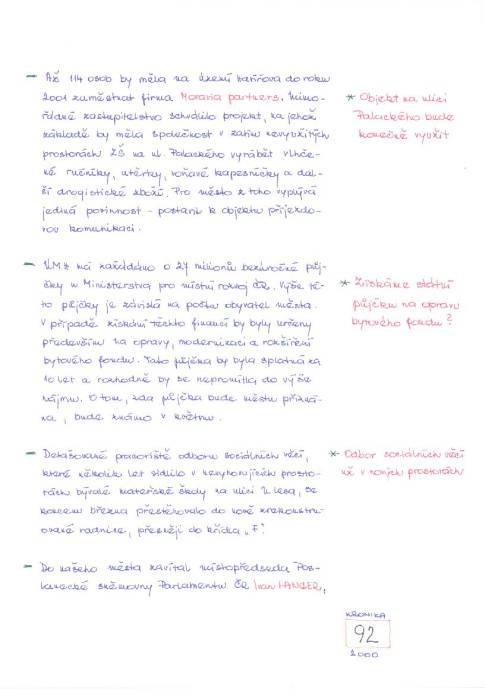 - Až 114 osob by měla na území Karviné do roku
2001 zaměstnat firma Moravia partners. Mimo-
řádné zastupitelstvo schválilo projekt, na jehož
základě by měla společnost v zatím nevyužitých
prostorách ZŠ na ul. Palackého vyrábět vlhče-
né ručníky, utěrky, voňavé kapesníčky a dal-
ší drogistické zboží. Pro město z toho vyplývá
jediná povinnost - postavit k objektu příjezdo-
vou komunikaci.
* Objekt na ulici
Palackého bude
konečně využit
- zažádáno o 27 milionů bezúročné půj-
čky u Ministerstva pro místní rozvoj ČR. Výše té-
to půjčky je závislá na počtu obyvatel města.
V případě získání těchto financí by byly určeny
především na opravy, modernizaci a rozšíření
bytového fondu. Tato půjčka by byla splatná za
10 let a rozhodně by se nepromítla do výše
nájmu. O tom, zda půjčka bude městu přizná-
na, bude známo v květnu.
* Získáme státní
půjčku na opravu
bytového fondu?
- Detašované pracoviště odboru sociálních věcí,
které několik let sídlilo v nevyhovujících prosto-
rách bývalé mateřské školy na ulici U lesa, se
koncem března přestěhovalo do nově zrekonstru-
ované radnice, přesněji do křídla „F".
* Odbor sociálních věcí
už v nových prostorách
- Do našeho města zavítal místopředseda Pos-
lanecké sněmovny Parlamentu ČR Ivan LANGER,
KRONIKA
92
2000